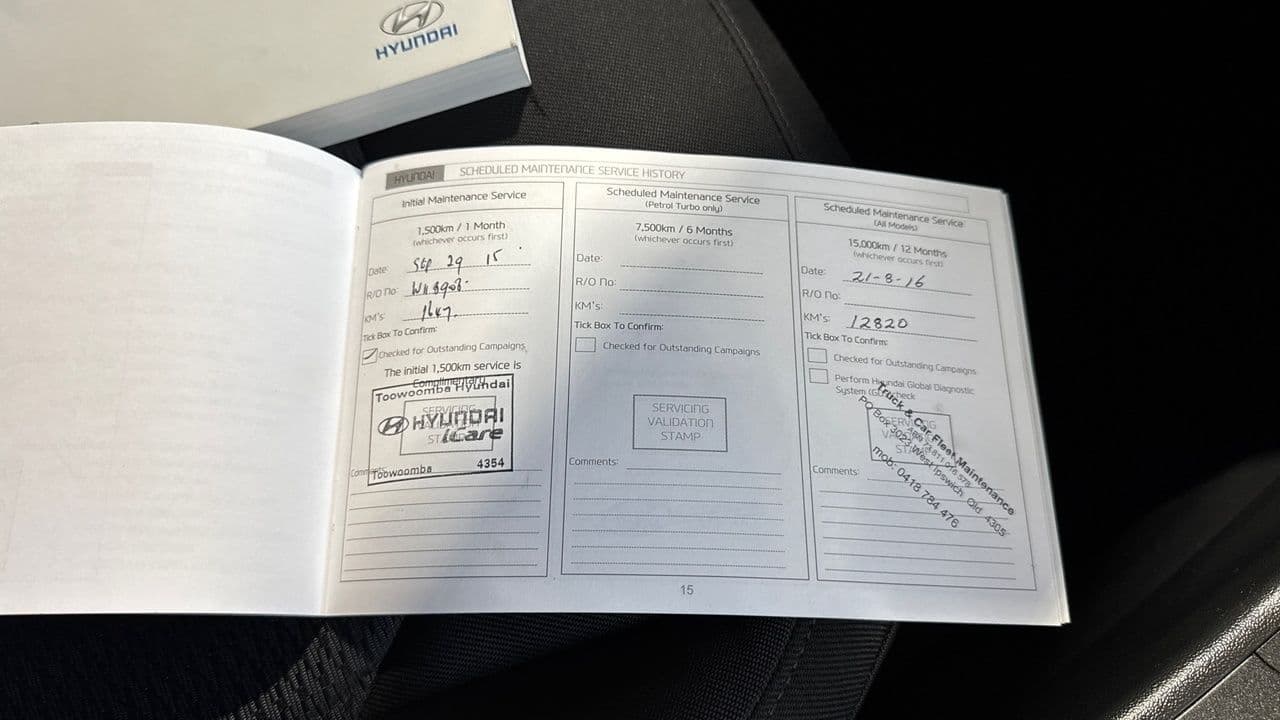 HYUNDAI
HYUNDAI SCHEDULED MAINTENANCE SERVICE HISTORY
Initial Maintenance Service
1,500km / 1 Month
(whichever occurs first)
Date: Sep 29 15
R/O No:
KM's:
Tick Box To Confirm:
Checked for Outstanding Campaigns
The initial 1,500km service is
Complimentary
Toowoomba Hyundai
HYUNDAI
iCare
Toowoomba 4354
Comments:
Scheduled Maintenance Service
(Petrol Turbo only)
7,500km / 6 Months
(whichever occurs first)
Date:
R/O No:
KM's:
Tick Box To Confirm:
Checked for Outstanding Campaigns
SERVICING
VALIDATION
STAMP
Comments:
Scheduled Maintenance Service
(All Models)
15,000km / 12 Months
(whichever occurs first)
Date: 21-8-16
R/O No:
KM's: 12820
Tick Box To Confirm:
Checked for Outstanding Campaigns
Perform Hyundai Global Diagnostic
System (G check
Truck & Car Fleet Maintenance
PO Box 3023 West Ipswich Qld 4305
mob: 0418 784 476
Comments:
15